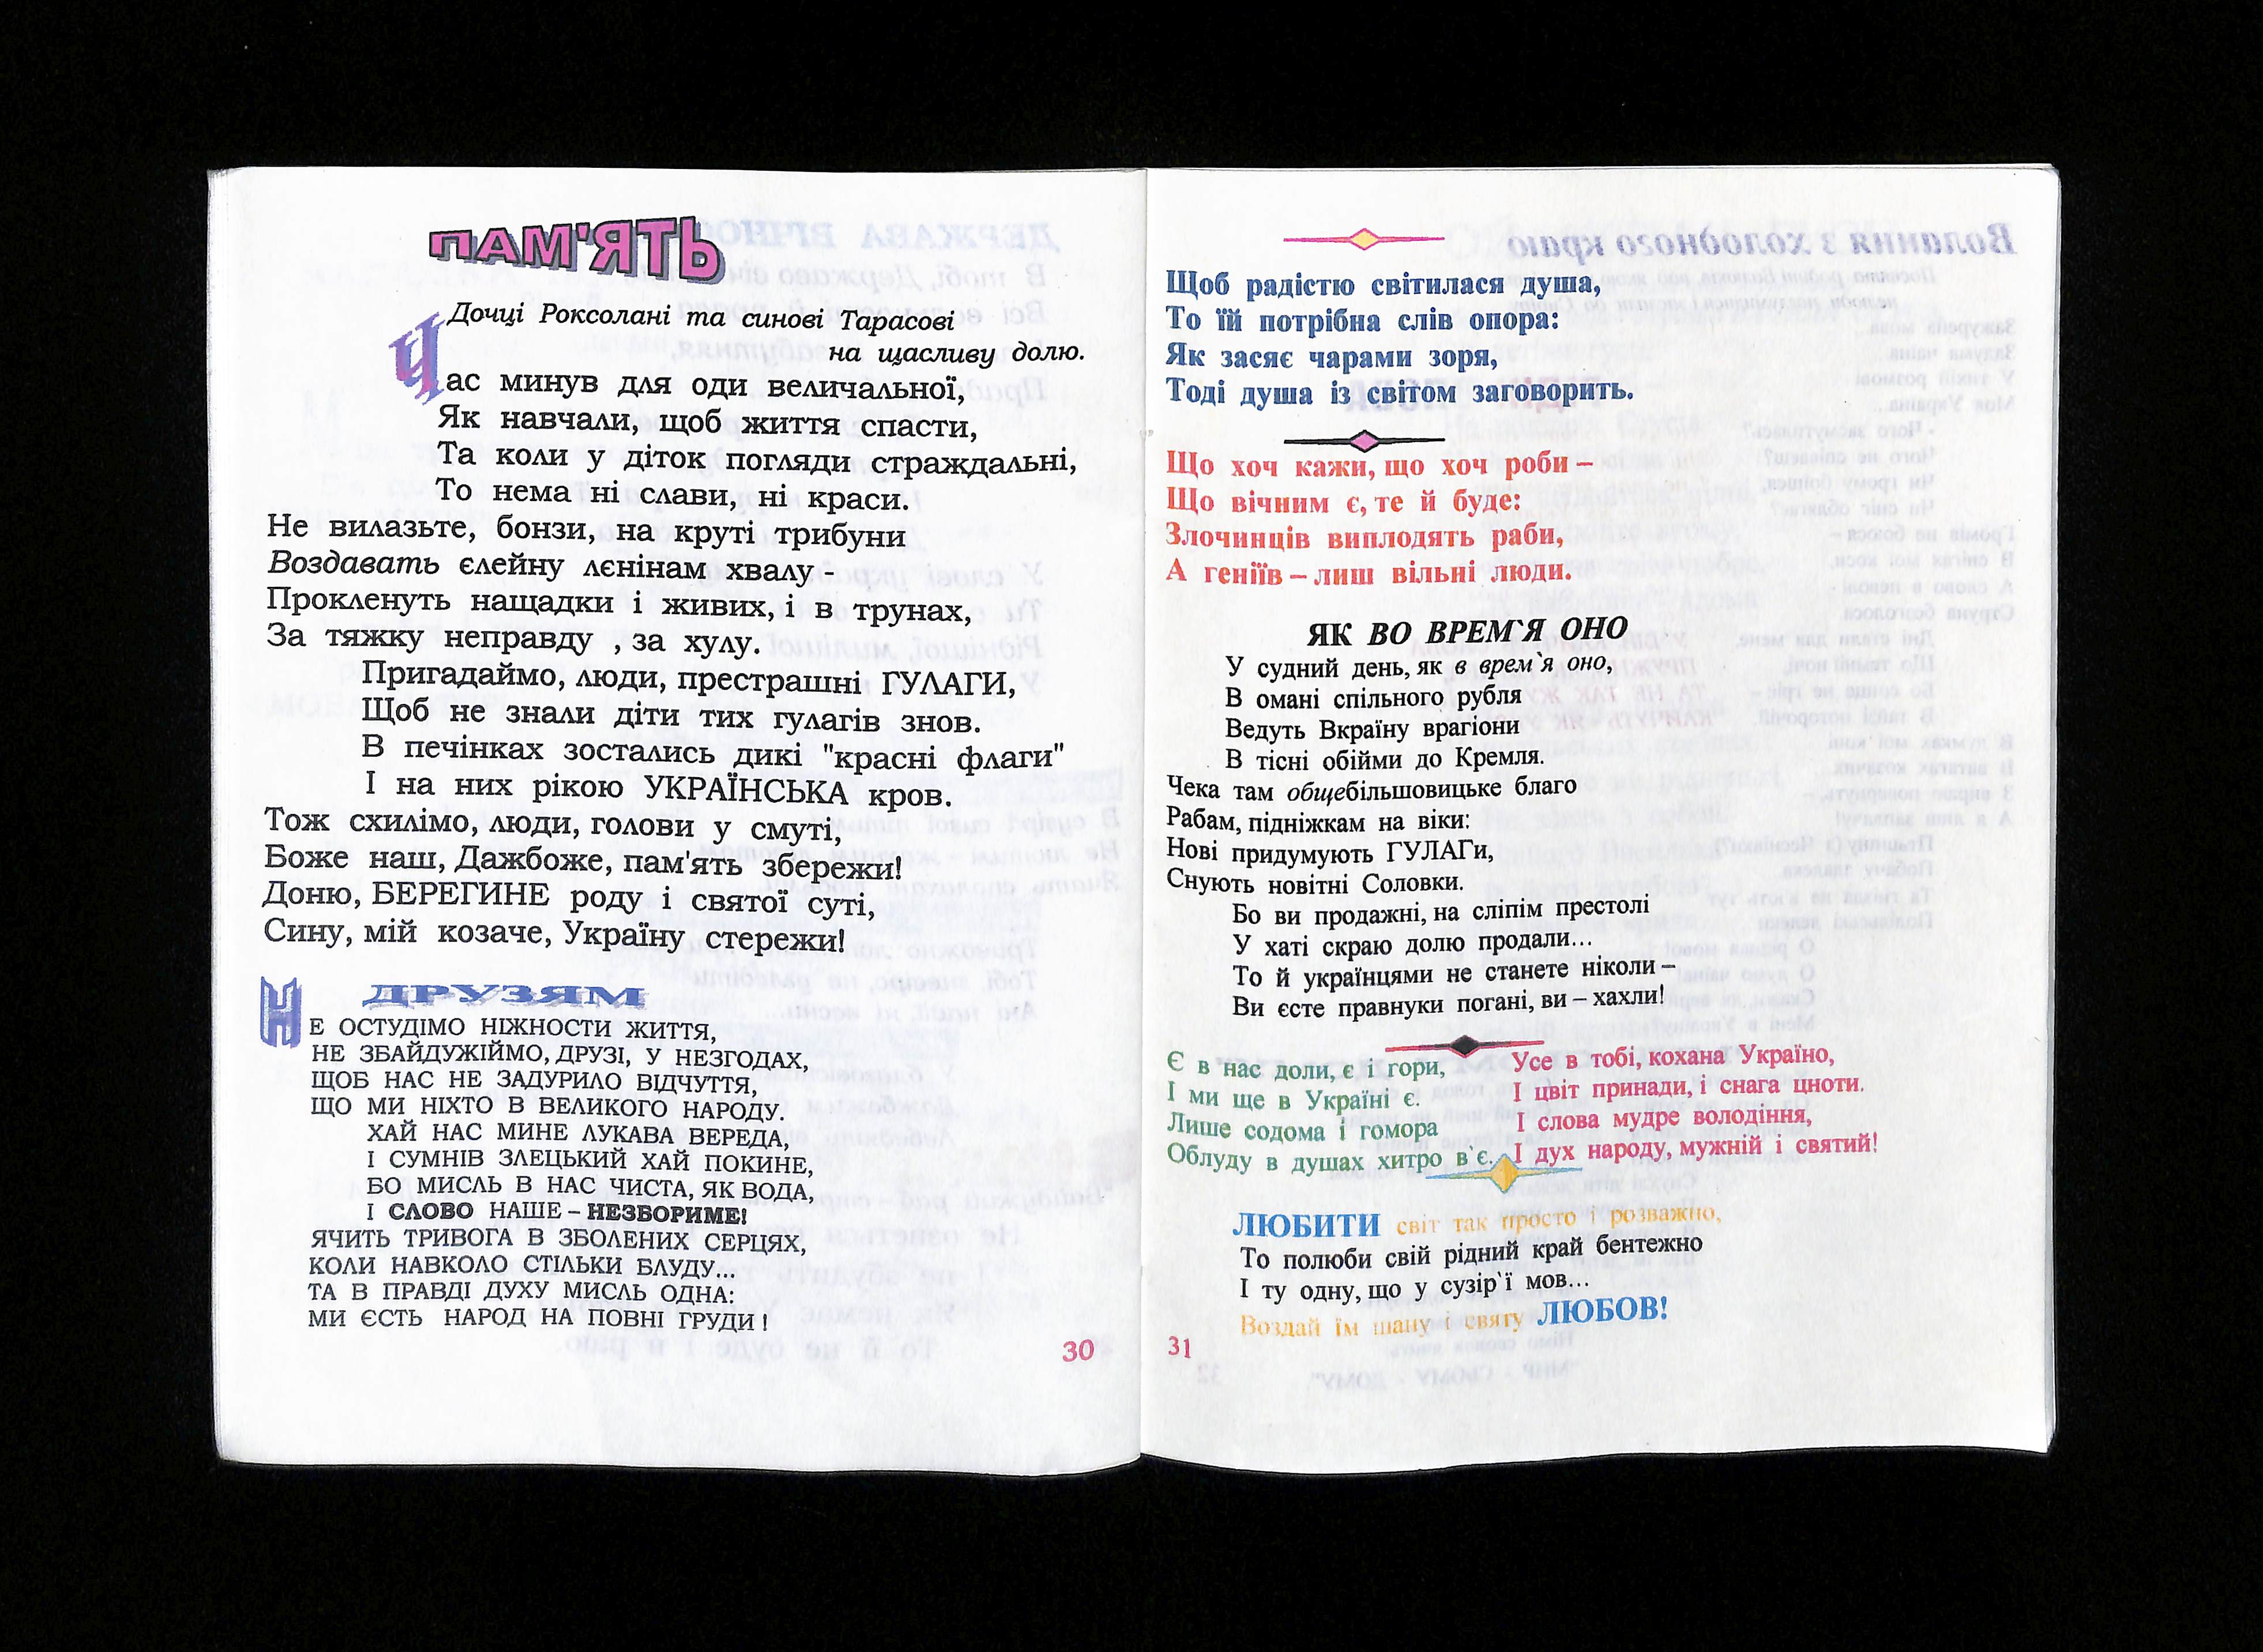 ПАМ'ЯТЬ
Дочці Роксолані та синові Тарасові
на щасливу долю.
Час минув для оди величальної,
Як навчали, щоб життя спасти,
Та коли у діток погляди страждальні,
То нема ні слави, ні краси.
Не вилазьте, бонзи, на круті трибуни
Воздавать єлейну лєнінам хвалу -
Прокленуть нащадки і живих, і в трунах,
За тяжку неправду , за хулу.
Пригадаймо, люди, престрашні ГУЛАГИ,
Щоб не знали діти тих гулагів знов.
В печінках зостались дикі "красні флаги"
І на них рікою УКРАЇНСЬКА кров.
Тож схилімо, люди, голови у смуті,
Боже наш, Дажбоже, пам'ять збережи!
Доню, БЕРЕГИНЕ роду і святої суті,
Сину, мій козаче, Україну стережи!
ДРУЗЯМ
НЕ ОСТУДІМО НІЖНОСТИ ЖИТТЯ,
НЕ ЗБАЙДУЖІЙМО, ДРУЗІ, У НЕЗГОДАХ,
ЩОБ НАС НЕ ЗАДУРИЛО ВІДЧУТТЯ,
ЩО МИ НІХТО В ВЕЛИКОГО НАРОДУ.
ХАЙ НАС МИНЕ ЛУКАВА ВЕРЕДА,
І СУМНІВ ЗЛЕЦЬКИЙ ХАЙ ПОКИНЕ,
БО МИСЛЬ В НАС ЧИСТА, ЯК ВОДА,
І СЛОВО НАШЕ – НЕЗБОРИМЕ!
ЯЧИТЬ ТРИВОГА В ЗБОЛЕНИХ СЕРЦЯХ,
КОЛИ НАВКОЛО СТІЛЬКИ БЛУДУ...
ТА В ПРАВДІ ДУХУ МИСЛЬ ОДНА:
МИ ЄСТЬ НАРОД НА ПОВНІ ГРУДИ !
30
Щоб радістю світилася душа,
То їй потрібна слів опора:
Як засяє чарами зоря,
Тоді душа із світом заговорить.
Що хоч кажи, що хоч роби –
Що вічним є, те й буде:
Злочинців виплодять раби,
А геніїв – лиш вільні люди.
ЯК ВО ВРЕМ`Я ОНО
У судний день, як в врем`я оно,
В омані спільного рубля
Ведуть Вкраїну врагіони
В тісні обійми до Кремля.
Чека там общебільшовицьке благо
Рабам, підніжкам на віки:
Нові придумують ГУЛАГи,
Снують новітні Соловки.
Бо ви продажні, на сліпім престолі
У хаті скраю долю продали...
То й українцями не станете ніколи –
Ви єсте правнуки погані, ви – хахли!
Є в нас доли, є і гори,
І ми ще в Україні є.
Лише содома і гомора
Облуду в душах хитро в`є.
Усе в тобі, кохана Україно,
І цвіт принади, і снага цноти.
І слова мудре володіння,
І дух народу, мужній і святий!
ЛЮБИТИ світ так просто і розважно,
То полюби свій рідний край бентежно
І ту одну, що у сузір`ї мов...
Воздай їм шану і святу ЛЮБОВ!
31